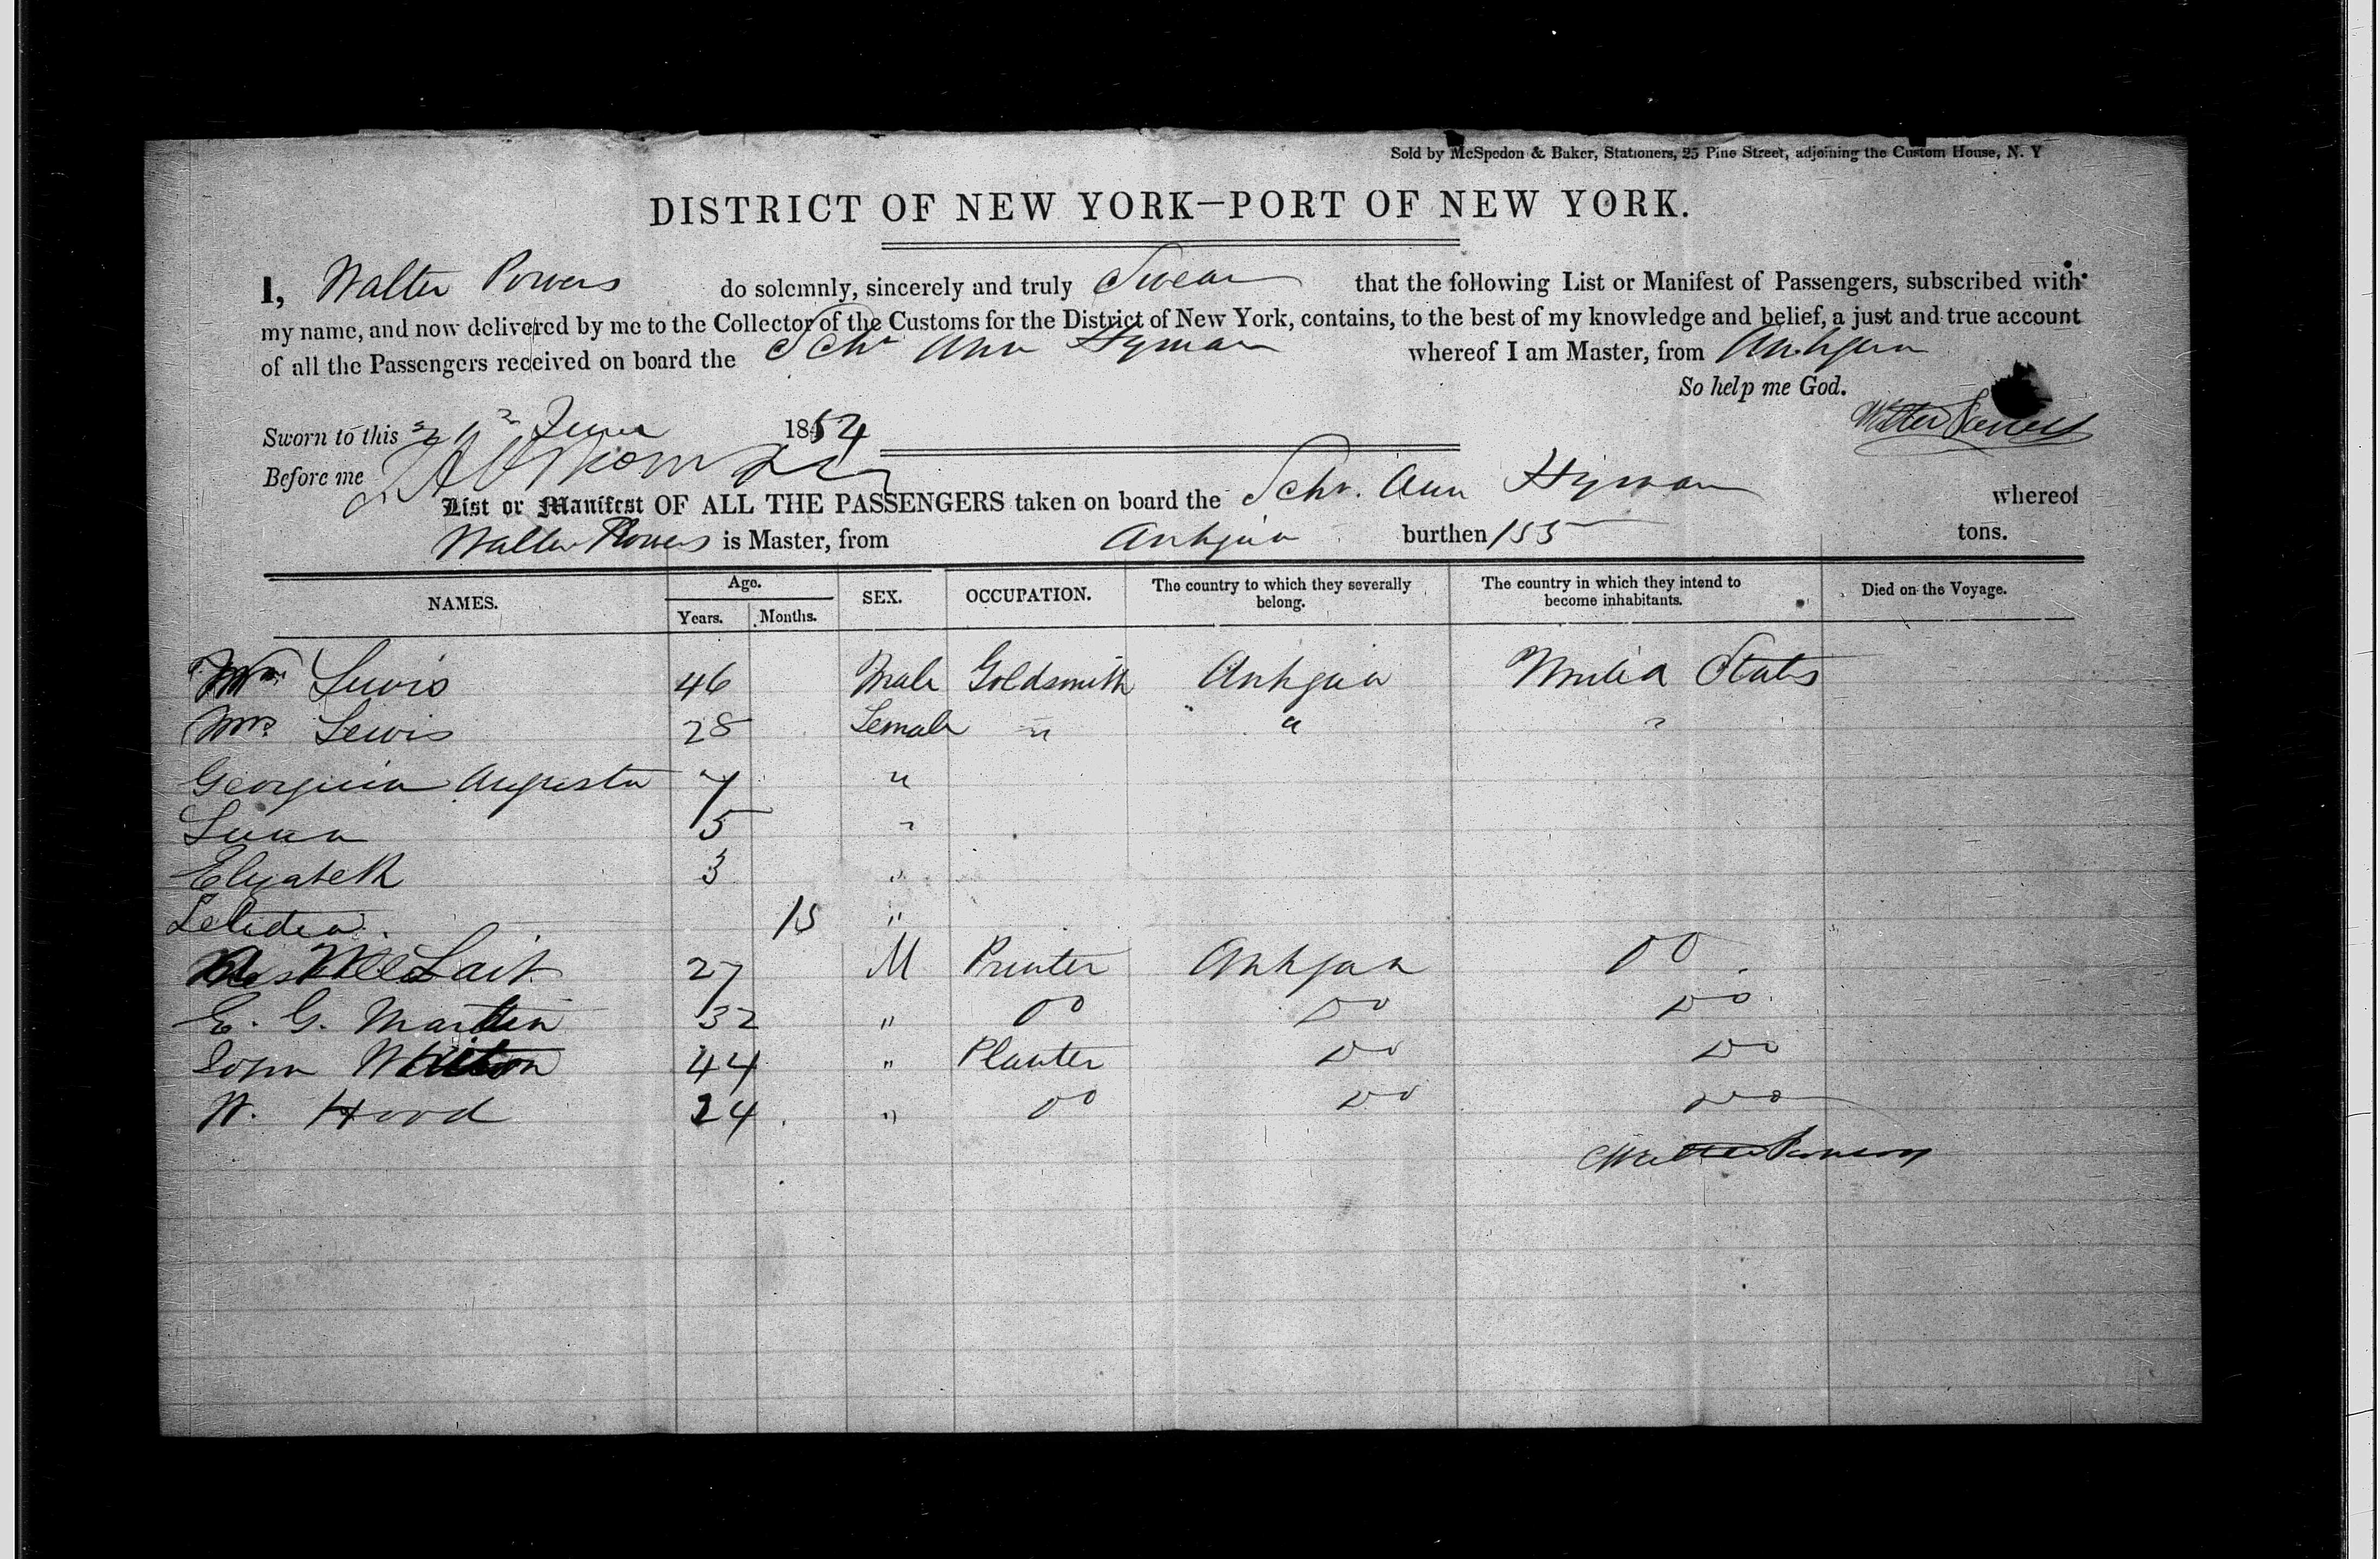 Sold by McSpedon & Baker, Stationers, 25 Pine Street, adjoining the Custom House, N. Y
DISTRICT OF NEW YORK—PORT OF NEW YORK.
I, Walter Powers do solemnly, sincerely and truly Swear that the following List or Manifest of Passengers, subscribed with
my name, and now delivered by me to the Collector of the Customs for the District of New York, contains, to the best of my knowledge and belief, a just and true account
of all the Passengers received on board the Schr Ann Hyman whereof I am Master, from Antigua
So help me God.
Sworn to this June 1854 Walter Powers
Before me
List or Manifest OF ALL THE PASSENGERS taken on board the Schr. Ann Hyman whereof
Walter Powers is Master, from Antigua burthen 155 tons.
NAMES. Age. Years. Months. SEX. OCCUPATION. The country to which they severally belong. The country in which they intend to become inhabitants. Died on the Voyage.
Wm Lewis 46 Male Goldsmith Antigua United States
Mrs Lewis 28 Female " " "
Georgina Augusta 7 "
5 "
Elizabeth 3 "
15 "
27 M Printer Antigua Do
E. G. Martin 32 " Do Do Do
John 44 " Planter Do Do
W. Hood 24 " Do Do Do
Walter Powers